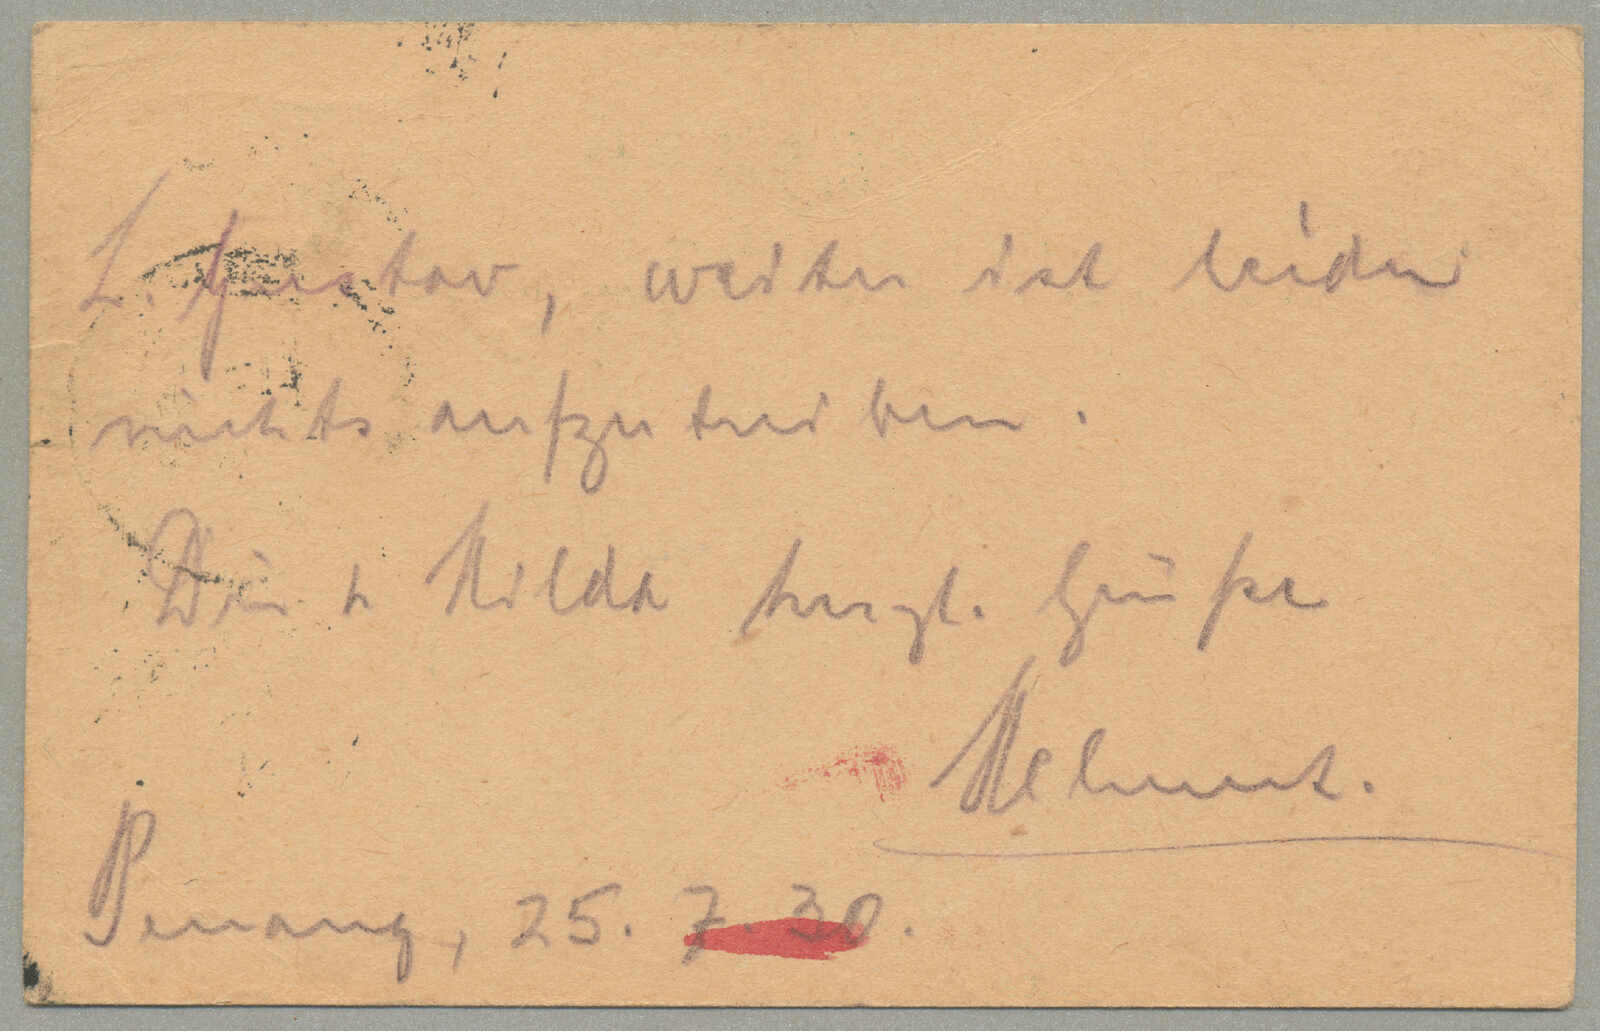 L. Gustav, weiter ist leider
nichts aufzutreiben.
Dir + Hilda herzl. Grüße
Helmut.
Penang, 25. 7. 30.